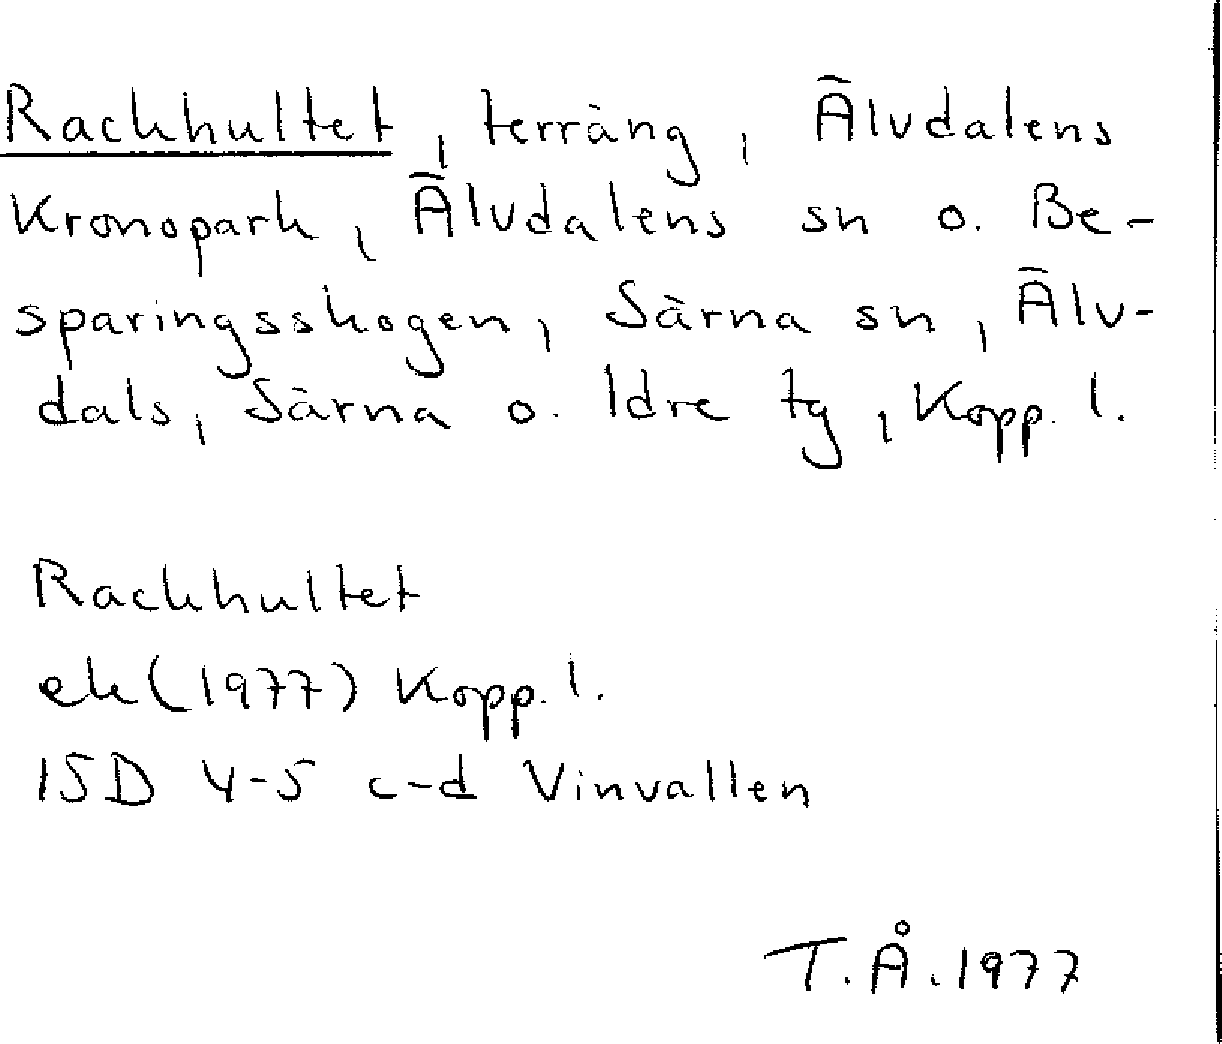 Rackhultet, terräng, Älvdalens
Kronopark, Älvdalens sn o. Be-
sparingsskogen, Särna sn, Älv-
dals, Särna o. Idre tg, Kopp. l.
Rackhultet
ek (1977) Kopp. l.
15D 4-5 c-d Vinvallen
T.Å. 1977